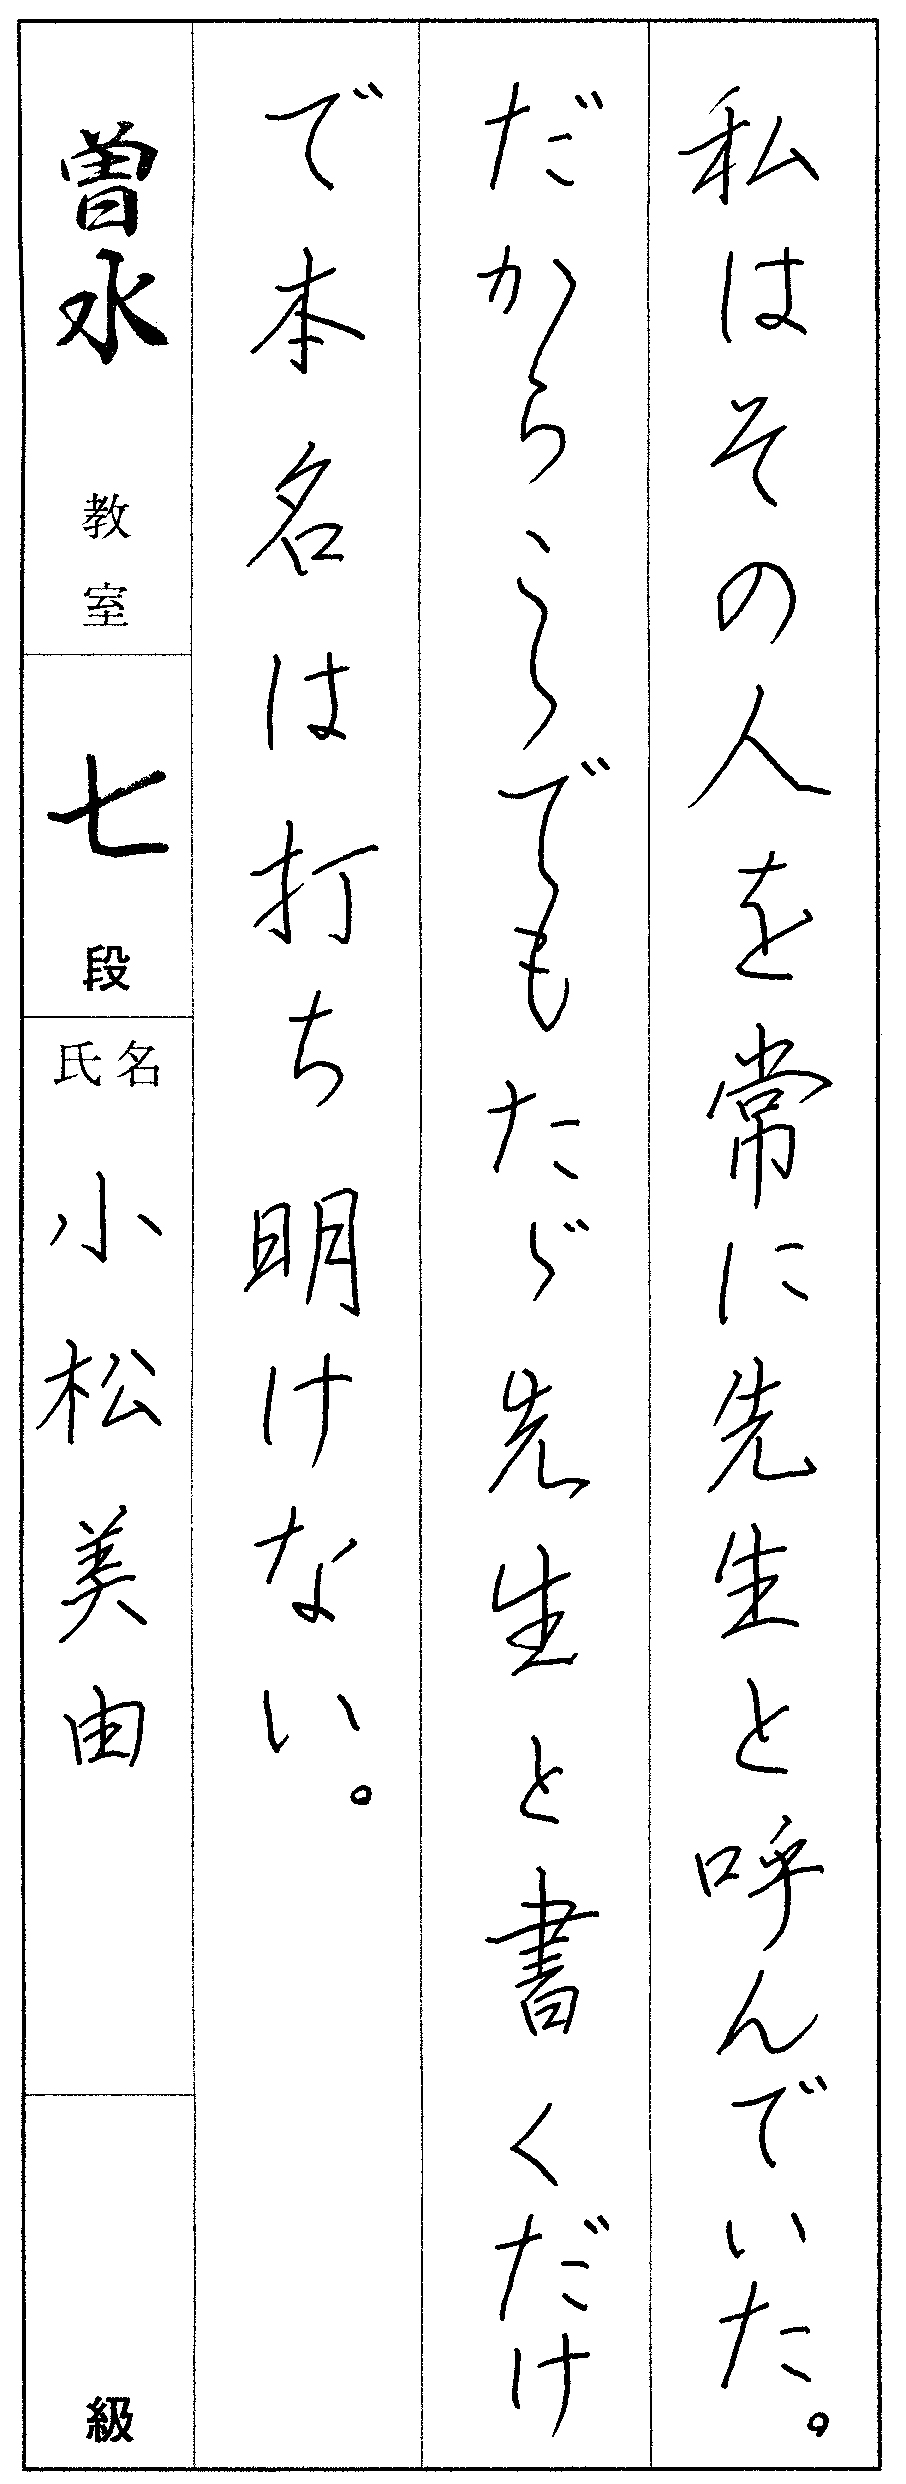 私はその人を常に先生と呼んでいた。
だからこゝでもたゞ先生と書くだけ
で本名は打ち明けない。
曽水 教室
七 段
氏名 小松美由
級